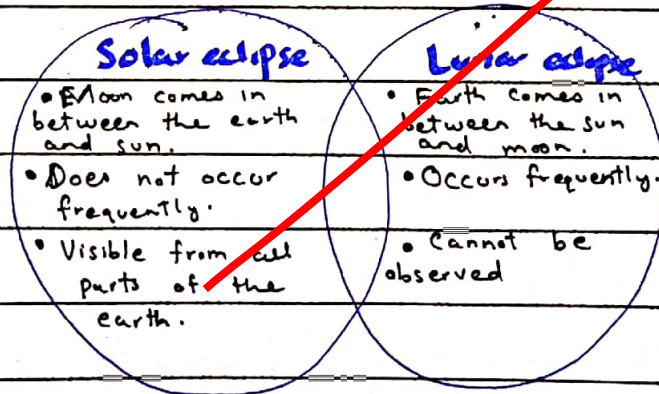 Solar eclipse
• Moon comes in
between the earth
and sun.
• Does not occur
frequently.
• Visible from all
parts of the
earth.
Lunar eclipse
• Earth comes in
between the sun
and moon.
• Occurs frequently.
• Cannot be
observed